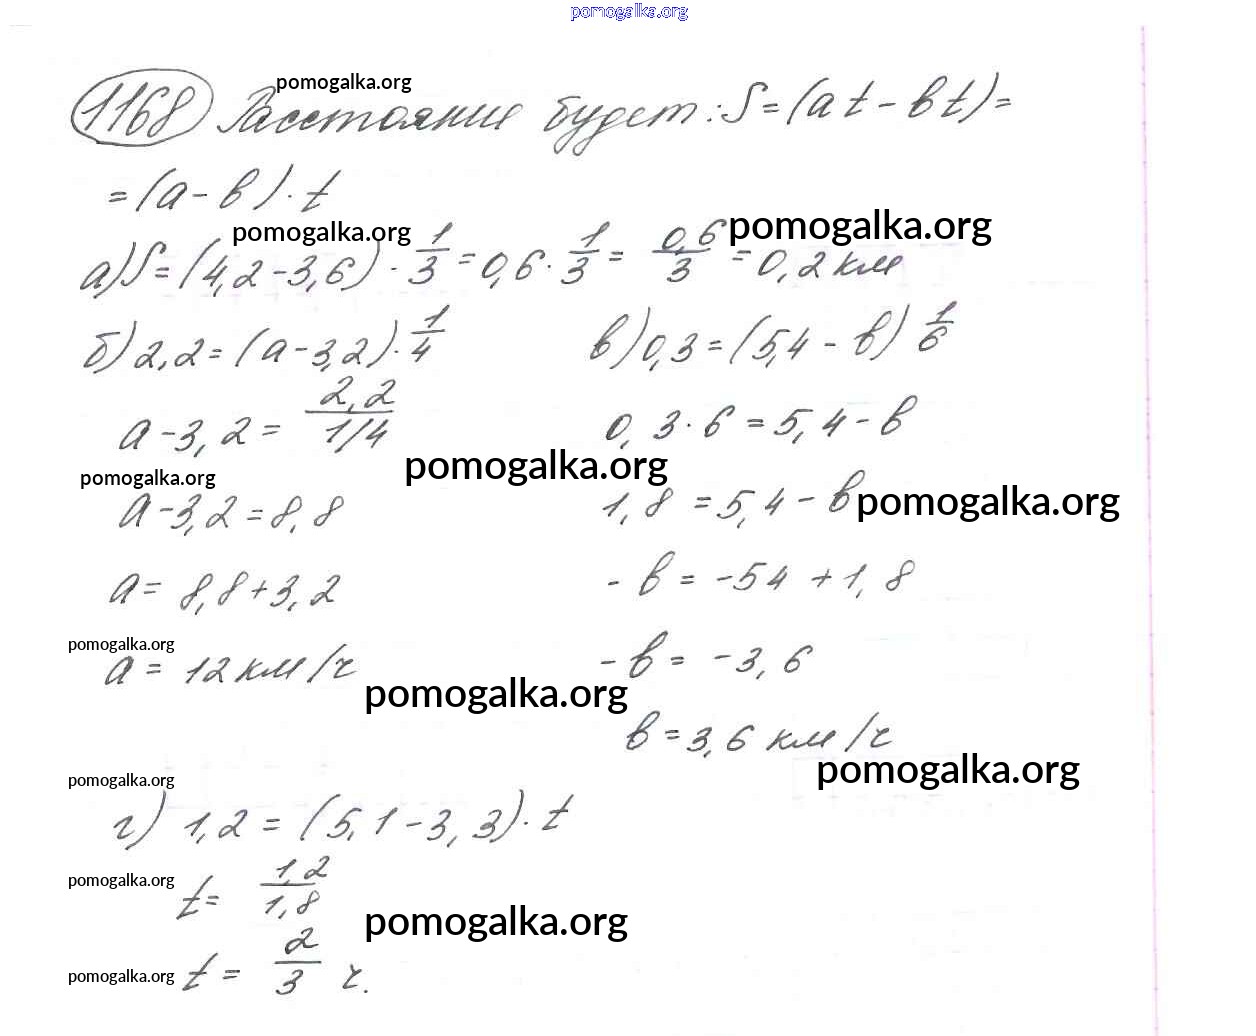 pomogalka.org
pomogalka.org
1168 Расстояние будет: S = (at - bt) =
= (a - b) · t
pomogalka.org
pomogalka.org
а) S = (4,2 - 3,6) · 1/3 = 0,6 · 1/3 = 0,6/3 = 0,2 км
б) 2,2 = (a - 3,2) · 1/4
в) 0,3 = (5,4 - b) 1/6
a - 3,2 = 2,2/1/4
0,3 · 6 = 5,4 - b
pomogalka.org
pomogalka.org
a - 3,2 = 8,8
1,8 = 5,4 - b
pomogalka.org
a = 8,8 + 3,2
- b = -54 + 1,8
pomogalka.org
a = 12 км/ч
- b = -3,6
pomogalka.org
b = 3,6 км/ч
pomogalka.org
pomogalka.org
г) 1,2 = (5,1 - 3,3) · t
pomogalka.org
t = 1,2/1,8
pomogalka.org
pomogalka.org
t = 2/3 ч.